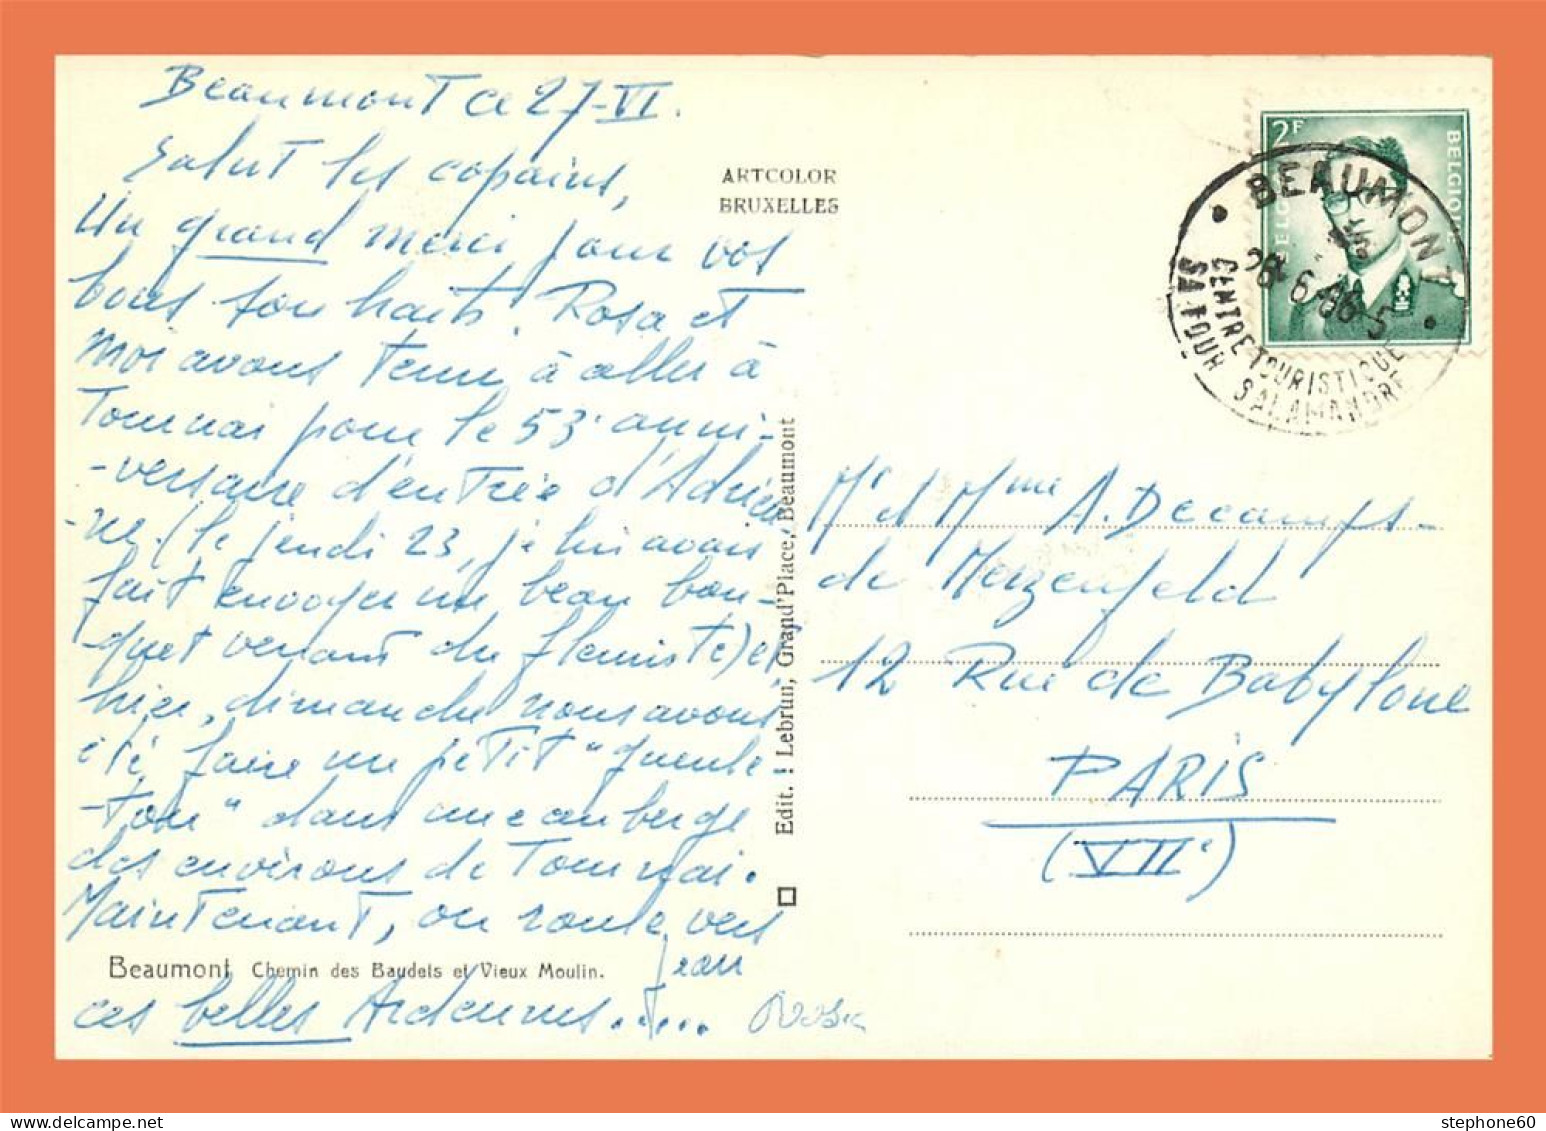 Beaumont ce 27-VI.
Salut les copains,
Un grand merci pour vos
bons souhaits. Rosa et
moi avons tenu à aller à
Tournai pour le 53e anni-
-versaire d'entrée d'Adrien-
-ne. (le jeudi 23, je lui avais
fait envoyer un beau bou-
-quet venant du fleuriste) et
hier, dimanche nous avons
été faire un petit "gueule-
-ton" dans une auberge
des environs de Tournai.
Maintenant, on roule vers
ces belles Ardennes.....
Jean
Rosa
Beaumont Chemin des Baudets et Vieux Moulin.
ARTCOLOR
BRUXELLES
Edit. : Lebrun, Grand'Place, Beaumont
2F
BELGIQUE
BEAUMONT
28-6-66-5
CENTRE TOURISTIQUE
SA TOUR SALAMANDRE
Mr et Mme A. Decamps-
de Merzenfeld
12 Rue de Babylone
PARIS
(VIIe)
stephone60